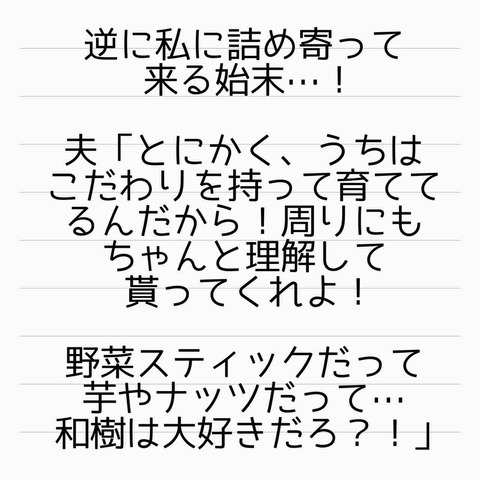 逆に私に詰め寄って
来る始末…！
夫「とにかく、うちは
こだわりを持って育てて
るんだから！周りにも
ちゃんと理解して
貰ってくれよ！
野菜スティックだって
芋やナッツだって…
和樹は大好きだろ？！」